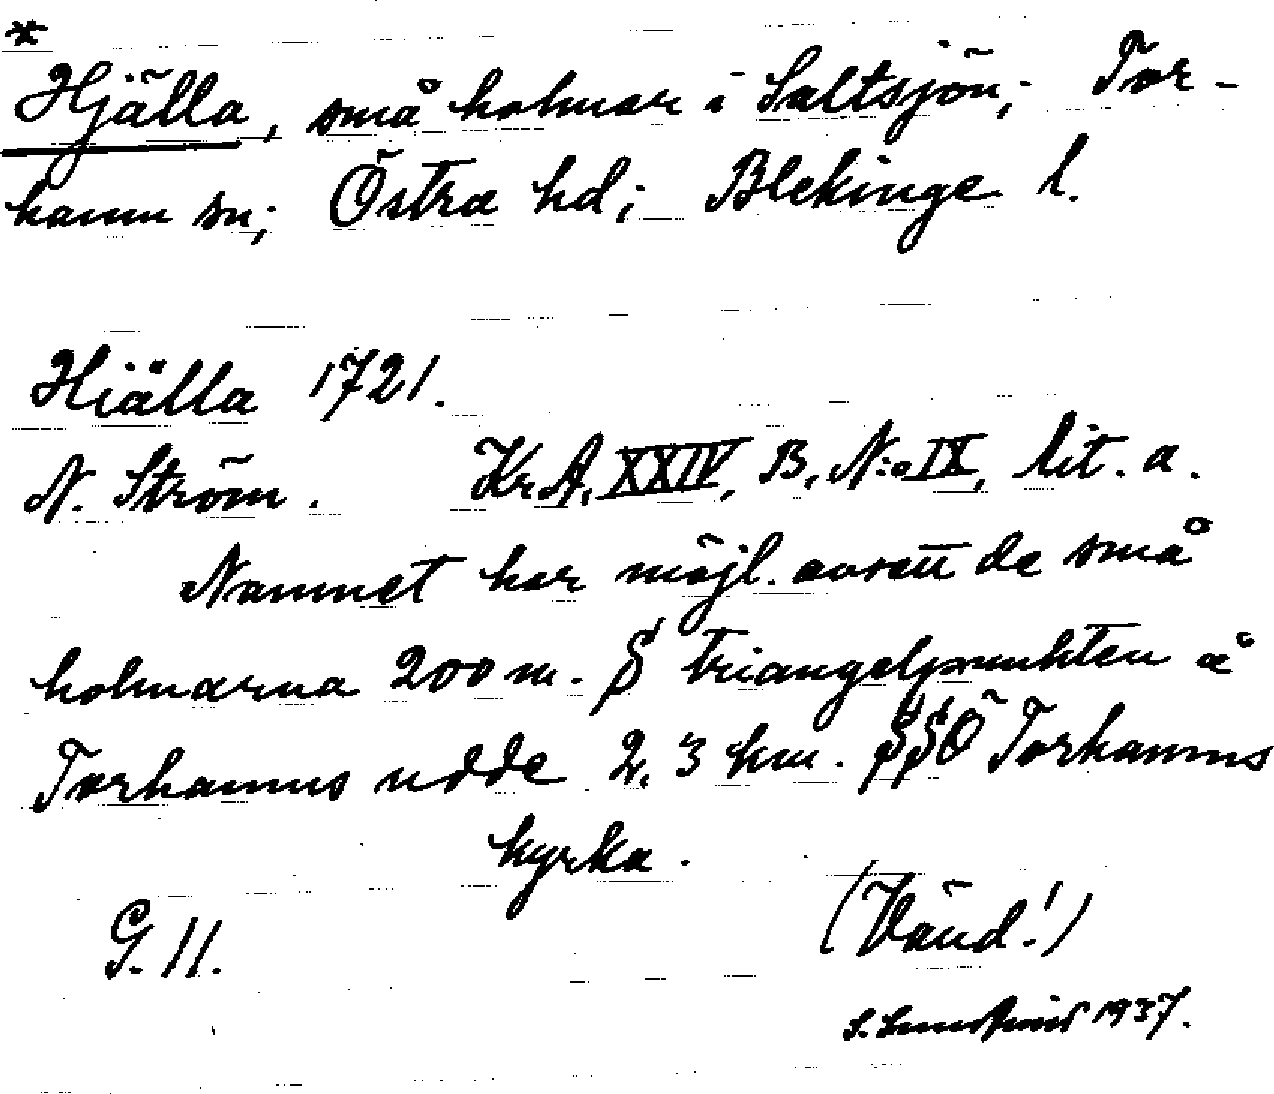 *
Hjälla, små holmar i Saltsjön; Tor-
hamn sn; Östra hd; Blekinge l.
Hiälla 1721.
N. Ström. Kr.A. XXIV, B, N:o IX, lit. a.
Namnet har möjl. avsett de små
holmarna 200 m. S triangelpunkten å
Torhamns udde 2,3 km. SSÖ Torhamns
kyrka.
G. 11. (Vänd!)
S. 1937.